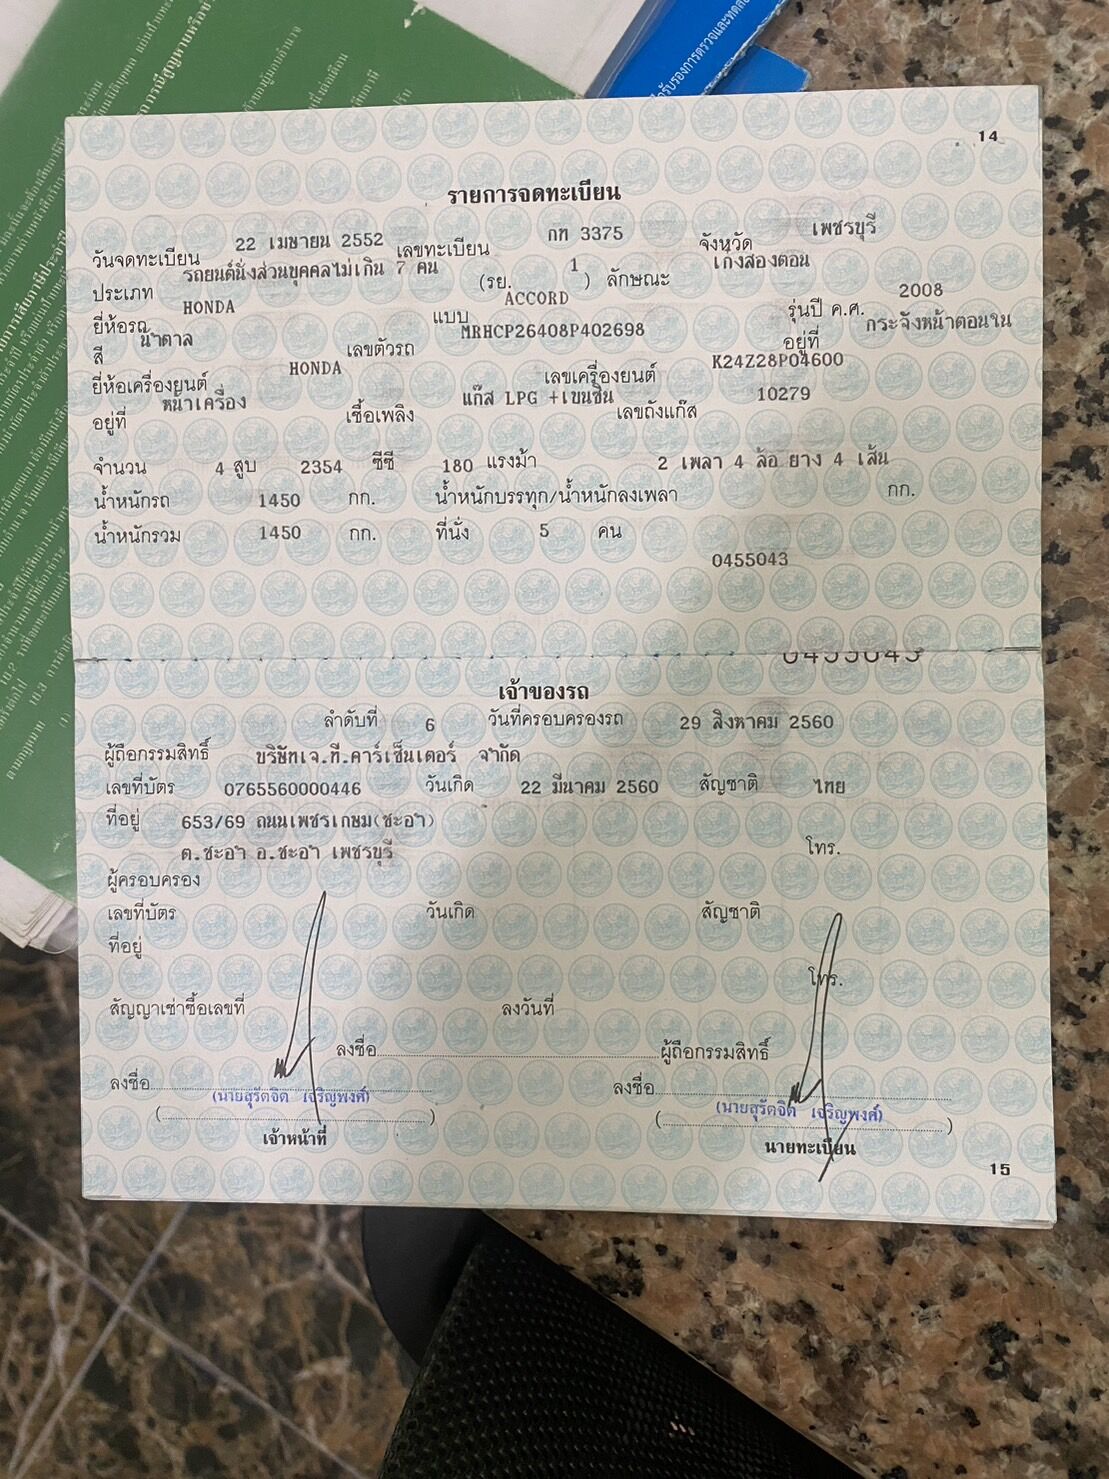 14
รายการจดทะเบียน
วันจดทะเบียน 22 เมษายน 2552 เลขทะเบียน กท 3375 จังหวัด เพชรบุรี
ประเภท รถยนต์นั่งส่วนบุคคลไม่เกิน 7 คน (รย. 1 ) ลักษณะ เก๋งสองตอน
ยี่ห้อรถ HONDA แบบ ACCORD รุ่นปี ค.ศ. 2008
สี น้ำตาล เลขตัวรถ MRHCP26408P402698 อยู่ที่ กระจังหน้าตอนใน
ยี่ห้อเครื่องยนต์ HONDA เลขเครื่องยนต์ K24Z28P04600
อยู่ที่ หน้าเครื่อง เชื้อเพลิง แก๊ส LPG +เบนซิน เลขถังแก๊ส 10279
จำนวน 4 สูบ 2354 ซีซี 180 แรงม้า 2 เพลา 4 ล้อ ยาง 4 เส้น
น้ำหนักรถ 1450 กก. น้ำหนักบรรทุก/น้ำหนักลงเพลา กก.
น้ำหนักรวม 1450 กก. ที่นั่ง 5 คน
0455043
0455043
เจ้าของรถ
ลำดับที่ 6 วันที่ครอบครองรถ 29 สิงหาคม 2560
ผู้ถือกรรมสิทธิ์ บริษัทเจ.ที.คาร์เซ็นเตอร์ จำกัด
เลขที่บัตร 0765560000446 วันเกิด 22 มีนาคม 2560 สัญชาติ ไทย
ที่อยู่ 653/69 ถนนเพชรเกษม(ชะอำ)
ต.ชะอำ อ.ชะอำ เพชรบุรี โทร.
ผู้ครอบครอง
เลขที่บัตร วันเกิด สัญชาติ
ที่อยู่
โทร.
สัญญาเช่าซื้อเลขที่ ลงวันที่
ลงชื่อ ผู้ถือกรรมสิทธิ์
ลงชื่อ ลงชื่อ
(นายสุรัตจิต เจริญพงศ์) (นายสุรัตจิต เจริญพงศ์)
เจ้าหน้าที่ นายทะเบียน
15